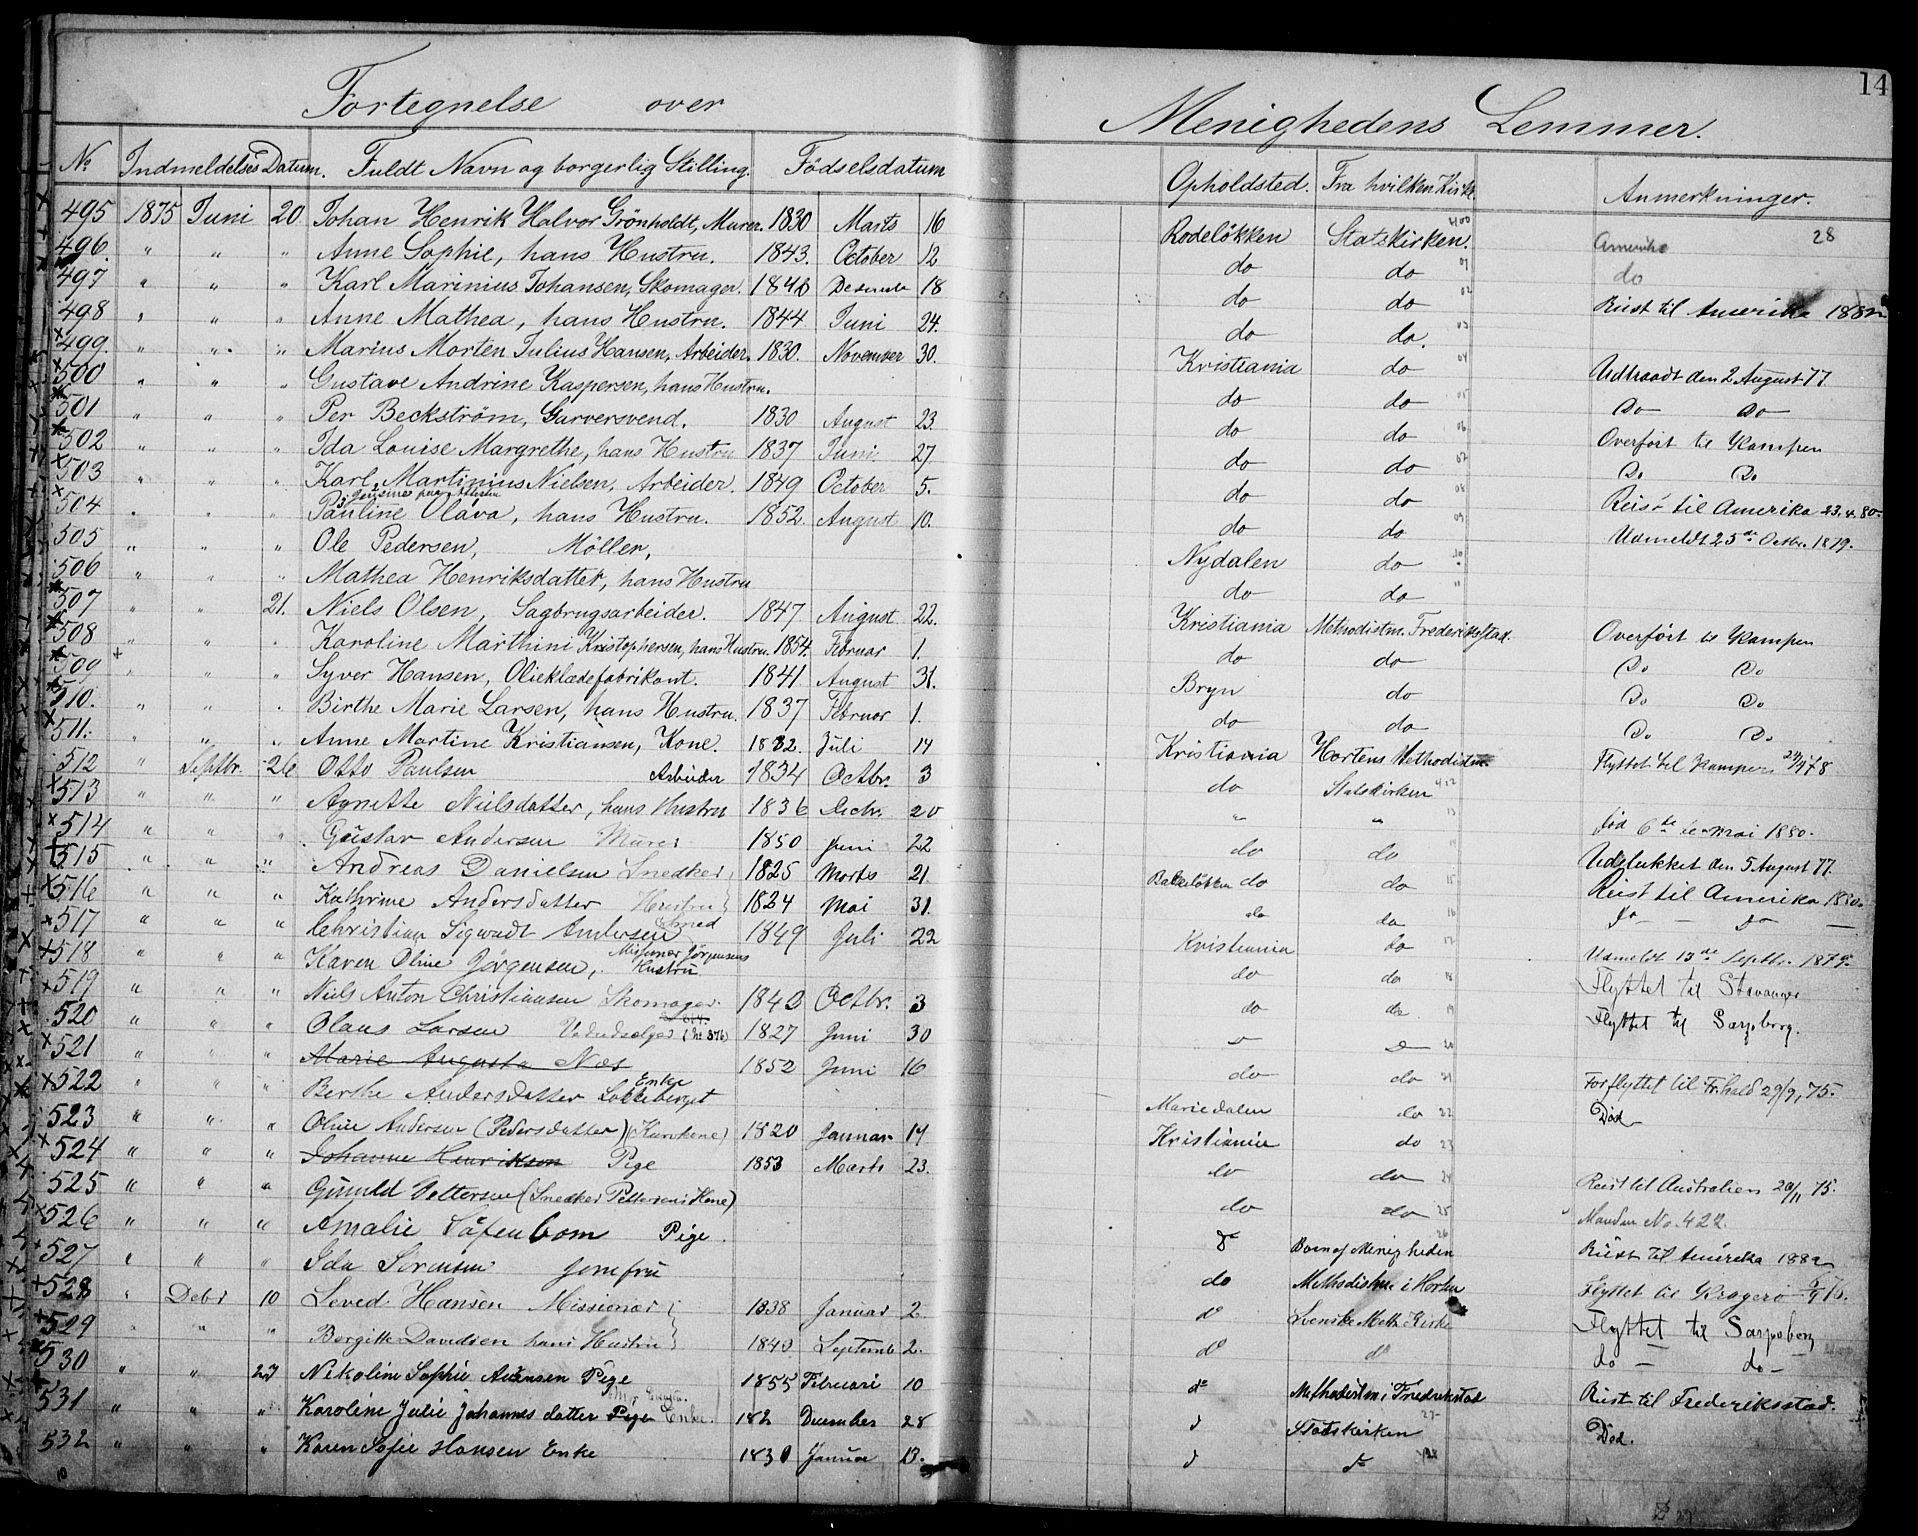 14
Fortegnelse over Menighedens Lemmer.
No Indmeldelses Datum. Fuldt Navn og borgerlig Stilling. Födselsdatum Opholdsted. Fra hvilken Kirke. Anmerkninger.
495 1875 Juni 20. Johan Henrik Halvor Grönholdt, Murer. 1830 Marts 16 Rodelökken Statskirken. 400 Amerika 28
496. " " " Anne Sophie, hans Hustru. 1843. October 12 do do do
497 " " " Karl Marinius Johansen, Skomager. 1840 Desember 18 do do Reist til Amerika 1882
498 " " " Anne Mathea, hans Hustru. 1844 Juni 24. do do.
499. " " " Marius Morten Julius Hansen, Arbeider. 1830. November 30. Kristiania do Udtraadt den 2 August 77
500 " " " Gustave Andrine Kaspersen, hans Hustru. do do Do Do
501 " " " Per Beckström, Garversvend. 1830 August 23. do do Overfört til Kampen
502 " " " Ida Louise Margrethe, hans Hustru 1837 Juni 27. do do Do Do
503 " " " Karl Martinius Nielsen, Arbeider. 1849 October 5. do do Reist til Amerika 23.4.80
504 " " " Pauline Olava, hans Hustru. 1852. August 10. do do Udmeldt 25de Octbr. 1879.
505 " " " Ole Pedersen, Möller, Nydalen do
506 " " " Mathea Henriksdatter, hans Hustru do do
507 " " 21. Niels Olsen, Sagbrugsarbeider. 1847 August 22. Kristiania Methodistm. Frederikstad. Overfört til Kampen
508 " " " Karoline Marthini Kristophersen, hans Hustru. 1854. Februar 1. do do Do Do
509 " " " Syver Hansen, Olieklædefabrikant. 1841. August 31. Bryn do Do Do
510. " " " Birthe Marie Larsen, hans Hustru. 1837 Februar 1. do do Do Do
511. " " " Anne Martine Kristiansen, Kone. 1832. Juli 14 Kristiania Hortens Methodistm. Flyttet til Kampen
512 " Septbr. 26 Otto Paulsen Arbeider 1834 Octbr. 3 do Statskirken 412
513 " " " Agnette Nielsdatter, hans Hustru 1836 Decbr. 20 " " Död 6te Mai 1880.
514 " " " Gustav Andersen Murer 1850 Juni 22 do do Udelukket den 5 August 77.
515 " " " Andreas Danielsen Snedker 1825 Marts 21. Bakkelökken do do Reist til Amerika 1880
516 " " " Kathrine Andersdatter Hustru 1824 Mai 31. do do do do
517 " " " Christian Sigwadt Andersen Smed 1849 Juli 22 Kristiania do Udmeldt 13de Septbr. 1879.
518 " " " Karen Oline Jörgensen, Missionær Jörgensens Hustru do do Flyttet til Stavanger
519 " " " Niels Anton Christiansen Skomager 1842 Octbr. 3 do do Flyttet til Sarpsborg.
520 " " " Olaus Larsen (No 876) 1827 Juni 30
521 " " " Marie Augusta Næs 1852 Juni 16 do do Forflyttet til Fr.hald 29/9, 75.
522 " " " Berthe Andersdatter Lökkeberget Enke Mariedalen do Död
523 " " " Oline Andersen (Pedersdatter) 1820 Januar 14 Kristiania do
524 " " " Johanne Henrikson Pige 1853 Marts 23. do do Reist til Australien 20/11 75.
525 " " " Gunild Pettersen (Snedker Pettersens Kone) do do Manden No. 422.
526 " " " Amalie Pige. Börn af Menigheden Reist til Amerika 1882
527 " " " Ida Sörensen Jomfru do Methodistm i Horten Flyttet til Kragerö
528 " Debr 10 Seved Hansen Missionær 1838 Januar 2. do Svenske Meth Kirke Flyttet til Sarpsborg
529 " " " Bergitte Davidsen hans Hustru 1840. Septemb 2. do do do do
530 " " 27 Nikoline Sophie Pige 1855 Februari 10 do Methodistm i Fredrikstad Reist til Frederiksstad.
531 " " " Karoline Julie Johannesdatter Pige Enke. December 28 Statskirken Död.
532 " " " Karen Sofie Hansen Enke 1830 Januar 13.